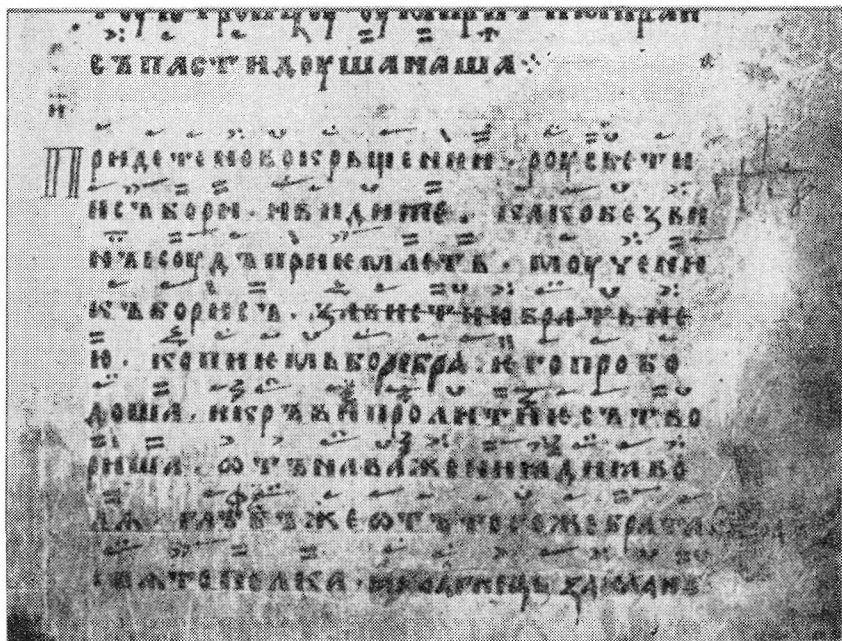 съпастидоушанаша
и
придетеновокрьщении · роусьсти
исъбори · ивидите · какобезви
нъісоудъприѥмлеть · моучени
къборисъ · завистиюбратьне
ю · копиѥмьворебра · ѥгопробо
доша · икръвипролитиѥсътво
риша · ѡтънаваженіꙗдиꙗво
лѧ · глѣбъжеѡтътогожебрата
свѧтополка · ꙗко